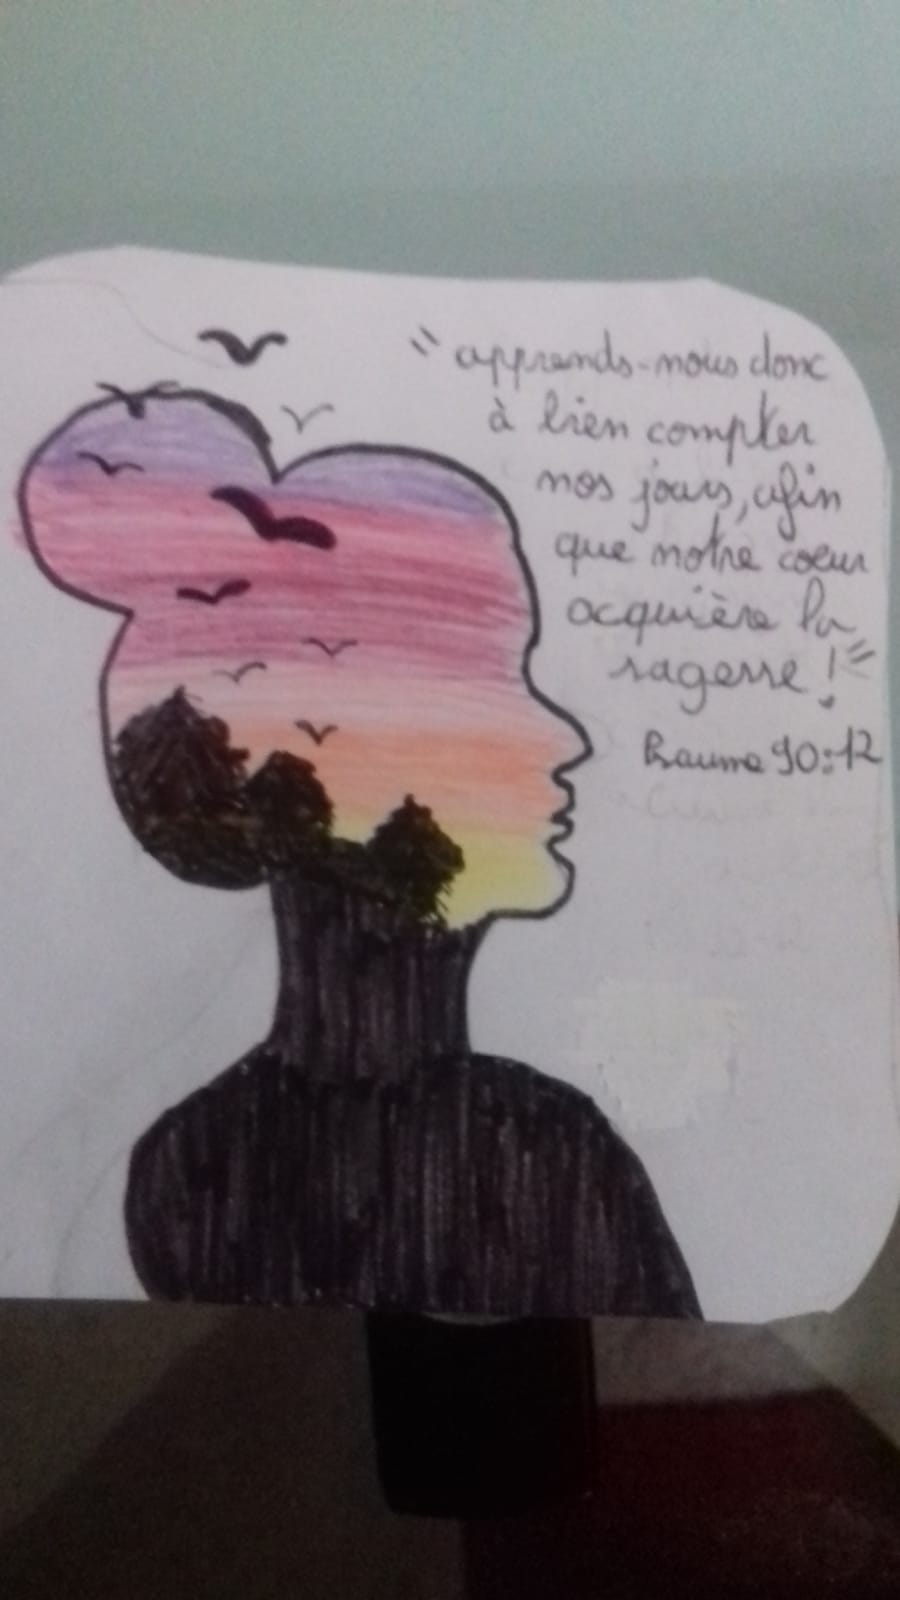 "apprends-nous donc
à bien compter
nos jours, afin
que notre coeur
acquière la
sagesse !"
Psaume 90:12